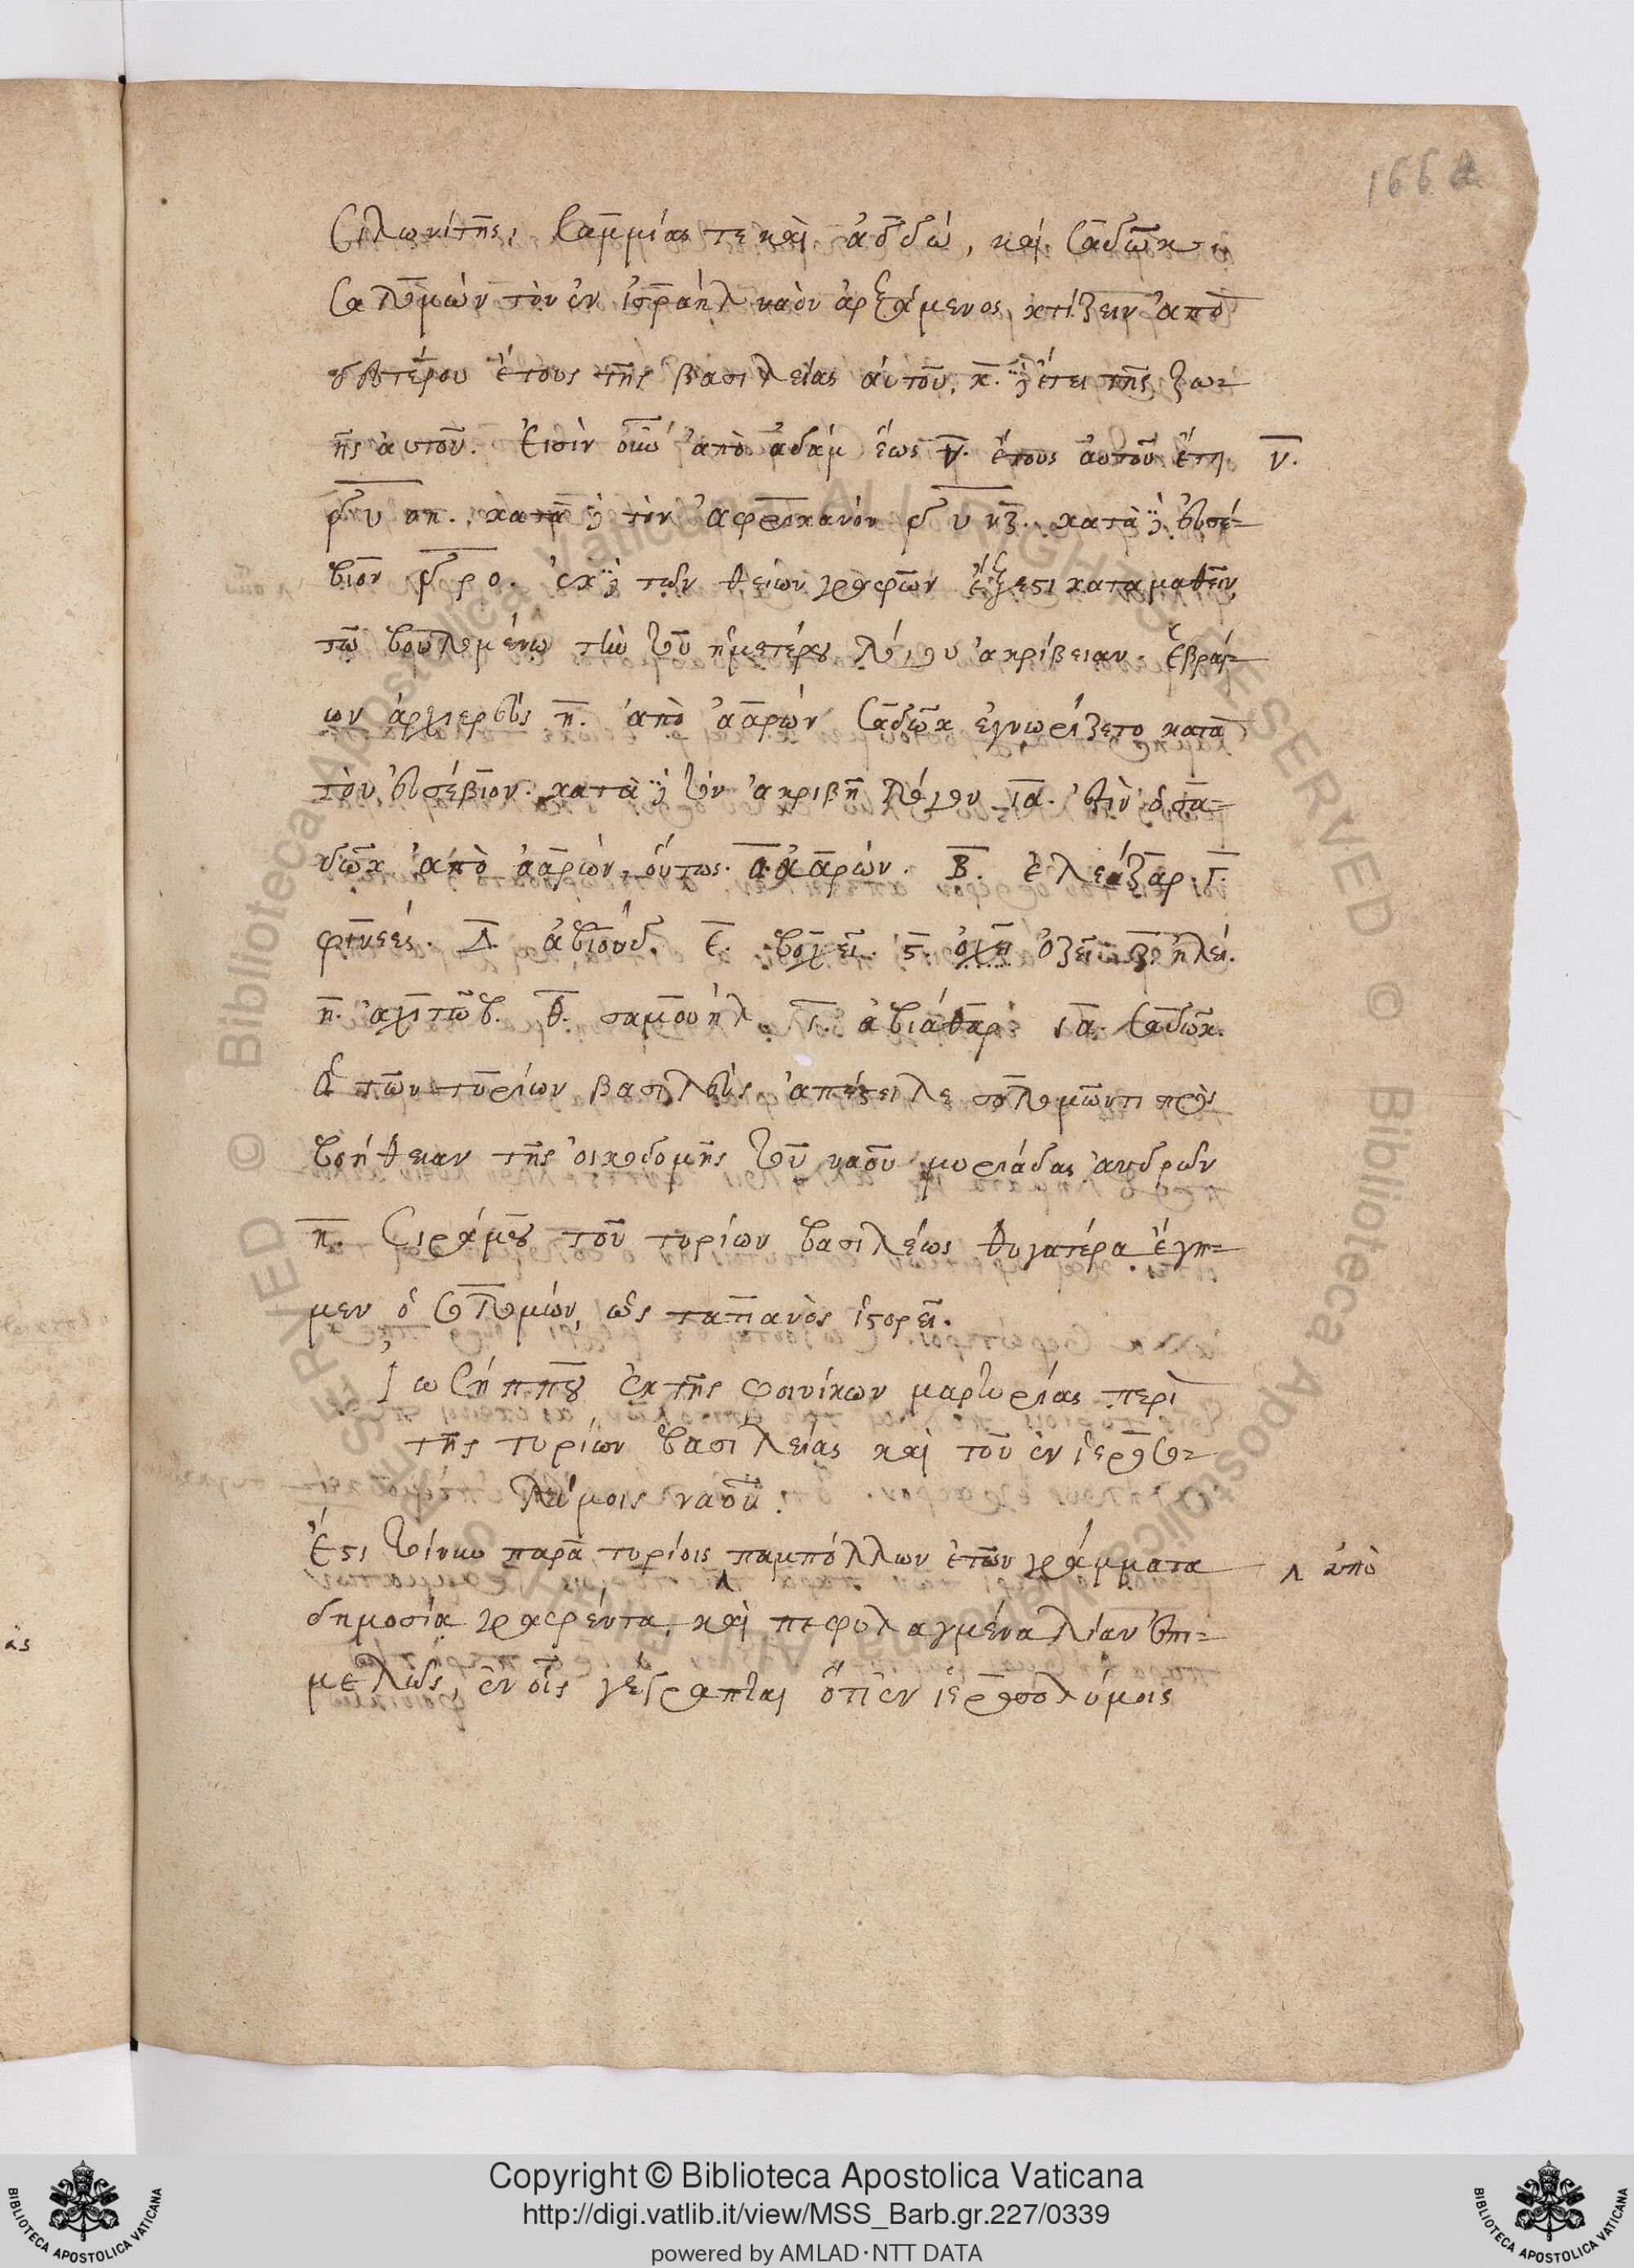 166a
Σιλωνίτης, Σαμμίας τε καὶ ἀδδώ, καὶ Σαδῶκ.
Σαλομὼν τὸν ἐν ἰσραὴλ ναὸν ἀρξάμενος κτίζειν ἀπὸ
δευτέρου ἔτους τῆς βασιλείας αὐτοῦ, κ. δὲ ἔτει τῆς ζω-
ῆς αὐτοῦ. Εἰσὶν οὖν ἀπὸ ἀδάμ ἕως ν. ἔτους αὐτοῦ ἔτη ν.
κατὰ δὲ τὸν ἀφρικανὸν κατὰ δὲ εὐσέ-
βιον ἐκ δὲ τῶν θείων γραφῶν ἔξεστι καταμαθεῖν
τῷ βουλομένῳ τὴν τοῦ ἡμετέρου λόγου ἀκρίβειαν. Ἑβραί-
ων ἀρχιερεὺς η. ἀπὸ ἀαρὼν Σαδὼκ ἐγνωρίζετο κατὰ
τὸν εὐσέβιον. κατὰ δὲ τὸν ἀκριβῆ λόγον ια. ἐστὶν ὁ σα-
δὼκ ἀπὸ ἀαρὼν, οὕτως. α. ἀαρών. Β. ἐλεάζαρ. Γ.
φινεές. Δ. ἀβιούδ. Ε. βοχεί. ϛ. ὀχεῖ ὀζεί. ζ. ἠλεί.
η. ἀχιτώβ. θ. σαμουήλ. ι. ἀβιάθαρ. ια. Σαδώκ.
Ὁ τῶν τυρίων βασιλεὺς ἀπέστειλε σολομῶντι πρὸς
βοήθειαν τῆς οἰκοδομῆς τοῦ ναοῦ μυριάδας ἀνδρῶν
η. Σιράμου τοῦ τυρίων βασιλέως θυγατέρα ἔγη-
μεν ὁ σολομών, ὡς τατιανὸς ἱστορεῖ.
Ἰωσήππου ἐκ τῆς φοινίκων μαρτυρίας περὶ
τῆς τυρίων βασιλείας καὶ τοῦ ἐν ἱεροσο-
λύμοις ναοῦ.
Ἔστι τοίνυν παρὰ τυρίοις παμπόλλων ἐτῶν γράμματα ⁁ ἀπὸ
δημοσίᾳ γραφέντα, καὶ πεφυλαγμένα λίαν ἐπι-
μελῶς, ἐν οἷς γέγραπται ὅτι ἐν ἱεροσολύμοις
Copyright © Biblioteca Apostolica Vaticana
http://digi.vatlib.it/view/MSS_Barb.gr.227/0339
powered by AMLAD·NTT DATA
BIBLIOTECA APOSTOLICA VATICANA
BIBLIOTECA APOSTOLICA VATICANA